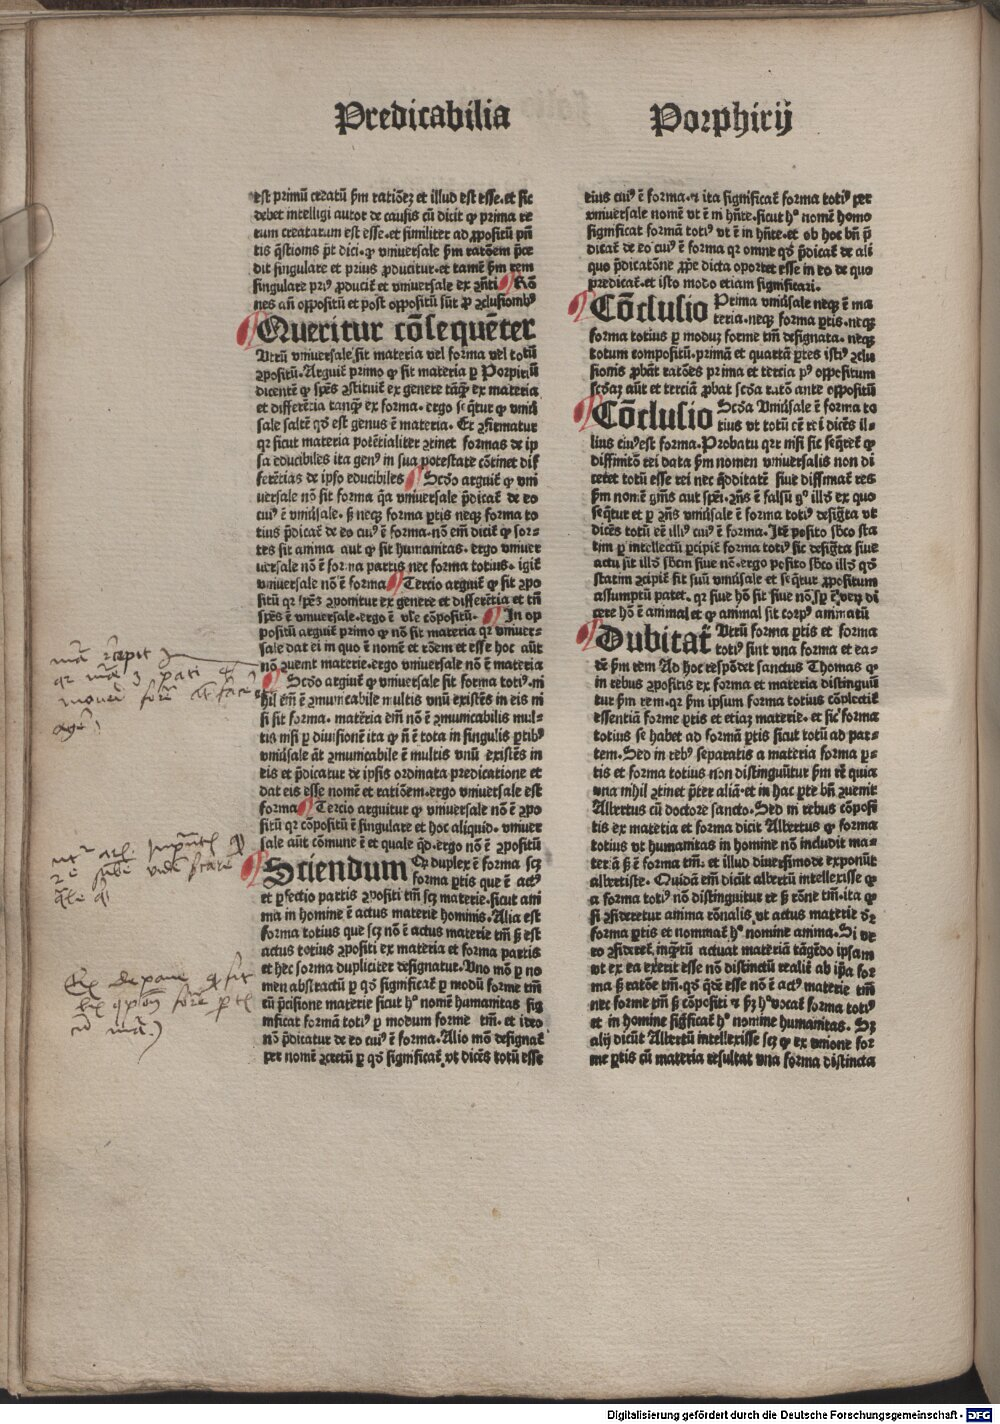 Predicabilia Porphirij
est primū creatū ẜm ratiōeꝫ et illud est esse. et sic
debet intelligi autor de causis cū dicit ꝙ prima re
rum creatarum est esse. et similiter ad ꝓpositū pn̄
tis q̄stionis pt̄ dici. ꝙ vniuersale ẜm ratōem p̄ce
dit singulare et prius ꝓducitur. et tamē ẜm rem
singulare priꝰ ꝓducit̄ et vniuersale ex cn̄ti Rō
nes an̄ oppositū et post oppositū sūt ꝓ ꝯclusionibꝰ
Queritur cōsequēter
Vtrū vniuersale sit materia vel forma vel totū
ꝯpositū. Arguit̄ primo ꝙ sit materia ꝑ Porpiriū
dicentē ꝙ sp̄es ꝯstituit̄ ex genere tāqꝫ ex materia
et differētia tanqꝫ ex forma. ergo seq̄tur ꝙ vniū
sale saltē qd̄ est genus ē materia. Et ꝯfirmatur
qꝛ sicut materia potētialiter ꝯtinet formas de ip
sa educibiles ita genꝰ in sua potestate cōtinet dif
ferētias de ipso educibiles Scd̄o arguit̄ ꝙ vni
uersale nō sit forma q̄a vniuersale p̄dicat̄ de eo
cuiꝰ ē vniūsale. ß neqꝫ forma ꝑtis neqꝫ forma to
tius p̄dicat̄ de eo cuiꝰ ē forma. nō em̄ dicit̄ ꝙ sor-
tes sit anima aut ꝙ sit humanitas. ergo vniuer
uersale nō ē forma partis nec forma totius. igit̄
vniuersale nō ē forma Tercio arguit̄ ꝙ sit ꝯpo
sitū qꝛ sp̄es ꝯponitur ex genere et differētia et tn̄
sp̄es ē vniuersale. ergo ē vl̄e cōpositū. In op
positū arguit̄ primo ꝙ nō sit materia qꝛ vniuer-
sale dat ei in quo ē nomē et rōem et esse hoc aūt
nō ꝯuenit materie. ergo vniuersale nō ē materia
Scd̄o arguit̄ ꝙ vniuersale sit forma totiꝰ. ni
hil em̄ ē ꝯmunicabile multis vnū existēs in eis ni
si sit forma. materia em̄ nō ē ꝯmunicabilis mul-
tis nisi ꝑ diuisionē ita ꝙ n̄ ē tota in singulis ꝑtibꝰ
vniūsale āt ꝯmunicabile ē multis vnū existēs in
eis et p̄dicatur de ipsis ordinata predicatione et
dat eis esse nomē et ratiōem. ergo vniuersale est
forma Tercio arguitur ꝙ vniuersale nō ē ꝯpo
sitū qꝛ cōpositū ē singulare et hoc aliquid. vniuer
sale aūt cōmune ē et quale qd̄. ergo nō ē ꝯpositū
Sciendum Ꝙ duplex ē forma scꝫ
forma ꝑtis que ē actꝰ
et ꝑfectio partis ꝯpositi tm̄ scꝫ materie. sicut ani
ma in homine ē actus materie hominis. Alia est
forma totius que scꝫ nō ē actus materie tm̄ ß est
actus totius ꝯpositi ex materia et forma partis
et hec forma dupliciter designatur. Vno mō ꝑ no
men abstractū ꝑ qd̄ significat̄ ꝑ modū forme tm̄
cū p̄cisione materie sicut hꝰ nomē humanitas sig
nificat formā totiꝰ ꝑ modum forme tm̄. et ideo
nō p̄dicatur de eo cuiꝰ ē forma. Alio mō designat̄
per nomē ꝯcretū ꝑ qd̄ significat̄. vt dicēs totū esse
eius cuiꝰ ē forma. ⁊ ita significat̄ forma totiꝰ per
vniuersale nomē vt ē in hn̄te. sicut hꝰ nomē homo
significat formā totiꝰ vt ē in hn̄te. et ob hoc bn̄ p̄
dicat̄ de eo cuiꝰ ē forma qꝛ omne qd̄ p̄dicat̄ de ali
quo p̄dicatōne ꝓpͥe dicta oportet esse in eo de quo
predicat̄. et isto modo etiam significari.
Cōclusio Prima vniūsale neqꝫ ē ma
teria. neqꝫ forma ꝑtis. neqꝫ
forma totius ꝑ moduꝫ forme tm̄ designata. neqꝫ
totum compositū. primā et quartā ꝑtes istiꝰ ꝯclu
sionis ꝓbāt ratōes prima et tercia pꝰ oppositum
scd̄aꝫ aūt et terciā ꝓbat scd̄a ratō ante oppositū
Cōclusio Scd̄a Vniūsale ē forma to
tius vt totū eē rei dicēs il-
lius cuiꝰ est forma. Probatur qꝛ nisi sic seq̄ret̄ ꝙ
diffinitō rei data ẜm nomen vniuersalis non di
ceret totū esse rei nec q̄dditatē siue diffinicōes rei
ẜm nomē gn̄is aut sp̄ei. ꝯn̄s ē falsū gͦ illd̄ ex quo
seq̄tur et ꝑ ꝯn̄s vniūsale ē forma totiꝰ desiḡta vt
dicēs totū eē illiꝰ cuiꝰ ē forma. Itē posito sb̄co sta
tim ꝑ intellectū ꝑcipit̄ forma totiꝰ sic desiḡta siue
actu sit illd̄ sb̄m siue nō. ergo posito sb̄co illd̄ qd̄
statim ꝑcipit̄ sit suū vniūsale et seq̄tur ꝓpositum
assumptū patet. qꝛ siue hō sit siue nō sp̄ ē veꝝ di
cere hō ē animal et ꝙ animal sit corpꝰ animatū
Dubitat̄ Vtrū forma ꝑtis et forma
totiꝰ sint vna forma et ea-
dē ẜm rem Ad hoc respōdet sanctus Thomas ꝙ
in rebus ꝯpositis ex forma et materia distinguū
tur ẜm rem. qꝛ ẜm ipsum forma totius cōplectit̄
essentiā forme ꝑtis et etiaꝫ materie. et sic forma
totius se habet ad formā ꝑtis sicut totū ad par-
tem. Sed in rebꝰ separatis a materia forma ꝑ-
tis et forma totius non distinguūtur ẜm rē quia
vna nihil ꝯtinet p̄ter aliā. et in hac ꝑte bn̄ ꝯuenit
Albertus cū doctore sancto. Sed in rebus cōposi
tis ex materia et forma dicit Albertus ꝙ forma
totius vt humanitas in homine nō includit ma-
teriā ß ē forma tm̄. et illud diuersimode exponūt
albertiste. Quidā em̄ dicūt albertū intellexisse ꝙ
a forma totiꝰ nō distinguitur re ß rōne tm̄. ita ꝙ
si ꝯsideretur anima rōnalis vt actus materie dr̄
forma ꝑtis et nominat̄ hꝰ nomine anima. Si ve
ro ꝯsideret̄ inqꝫtū actuat materiā tāgēdo ipsam
vt ex ea exierit esse nō distinctū realit̄ ab ip̄a for
ma ß ratōe tm̄. qd̄ qd̄ē esse nō ē actꝰ materie tm̄
nec forme tm̄ ß cōpositi ⁊ ẜꝫ hꝰ vocat̄ forma totiꝰ
et in homine sig̅ficat̄ hꝰ nomine humanitas. Sꝫ
alij dicūt Albertū intellexisse scꝫ ꝙ ex vnione for
me ꝑtis cū materia resultat vna forma distincta
Digitalisierung gefördert durch die Deutsche Forschungsgemeinschaft - DFG